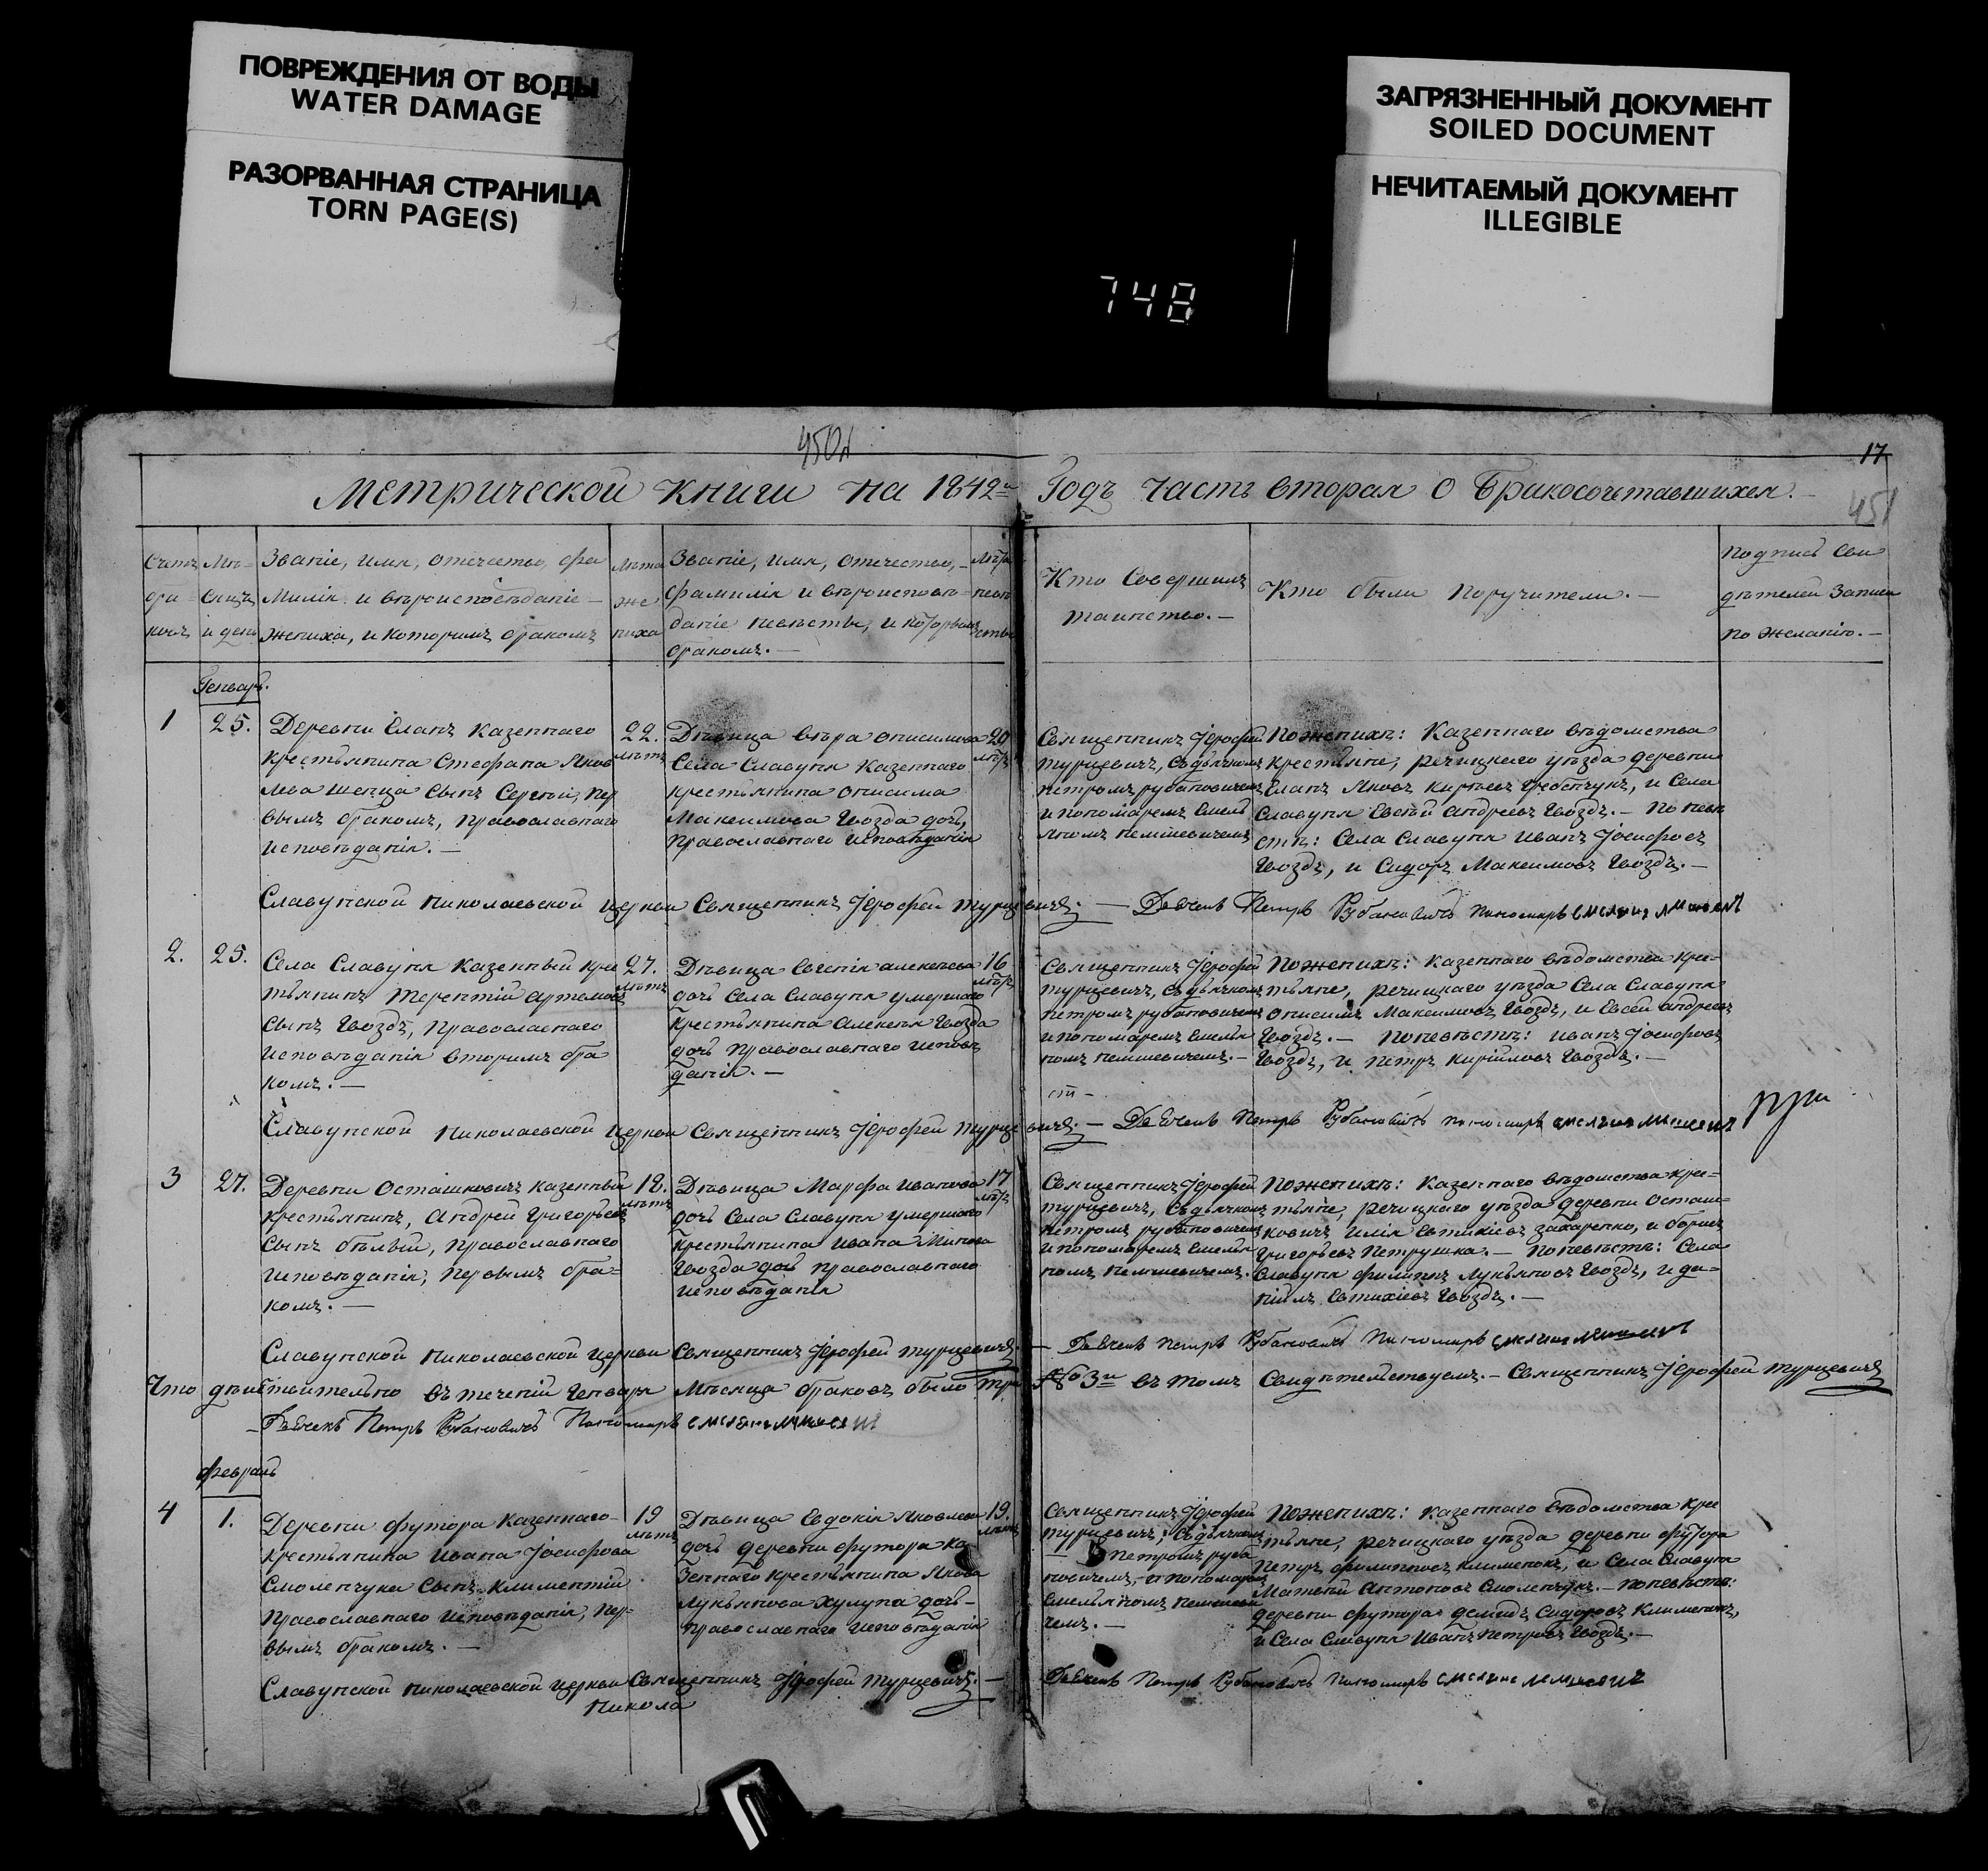 ПОВРЕЖДЕНИЯ ОТ ВОДЫ
WATER DAMAGE
РАЗОРВАННАЯ СТРАНИЦА
TORN PAGE(S)
ЗАГРЯЗНЕННЫЙ ДОКУМЕНТ
SOILED DOCUMENT
НЕЧИТАЕМЫЙ ДОКУМЕНТ
ILLEGIBLE
748
17
451
Метрической книги на 1842й Годъ часть вторая о Бракосочетавшихся.
Счетъ
бра-
ковъ
Мѣ-
сяцъ
и день
Званіе, имя, отечество, фа
милія и вѣроисповѣданіе
жениха, и которымъ бракомъ
Лѣта
же
ниха
Званіе, имя, отечество,
фамилія и вѣроисповѣ-
даніе невѣсты, и которымъ
бракомъ.
Лѣта
невѣ
сты
Кто Совершилъ
таинство.
Кто были Поручители.
Подпись Сви
дѣтелей Записи
по желанію.
Генварь.
1
25.
Деревни Еланъ казеннаго
крестьянина Стефана Яков
лева сынъ Сергѣй, пер
вымъ бракомъ, православнаго
исповѣданія.
22.
лѣтъ
Дѣвица Вѣра Онисимова
Села Славуня казеннаго
крестьянина Онисима
Максимова Гвозда дочь,
православнаго исповѣданія
20
лѣтъ
Священникъ Іерофей
Турцевичъ, съ дьячкомъ
Петромъ Рубановичемъ
и пономаремъ Емель
яномъ
По женихѣ: Казеннаго вѣдомства
крестьяне, рѣчицкаго уѣзда деревни
Еланъ Яковъ и Села
Славуня Евсѣй Андреевъ Гвоздъ. - По невѣ
стѣ: Села Славуня Иванъ Іосифовъ
Гвоздъ, и Сидоръ Максимовъ Гвоздъ.
Славунской Николаевской церкви Священникъ Іерофей Турцевичъ. - Дьячекъ Петръ Рубановичъ Пономарь
2.
25.
Села Славуня казенный крес
тьянинъ Терентій Артемовъ
Сынъ Гвоздъ, православнаго
исповѣданія вторымъ бра
комъ.
27.
лѣтъ
Дѣвица Евгенія Алексѣева
дочь Села Славуня умершаго
крестьянина Алексѣя Гвозда
дочь православнаго исповѣ
данія.
16
лѣтъ
Священникъ Іерофей
Турцевичъ, съ дьячкомъ
Петромъ Рубановичемъ
и пономаремъ Емелья
номъ
По женихѣ: казеннаго вѣдомства кре-
тьяне, рѣчицкаго уѣзда Села Славуня
Онисимъ Максимовъ Гвоздъ, и Евсей Андреевъ
Гвоздъ. - По невѣстѣ: Иванъ Іосифовъ
Гвоздъ, и Петръ Кирилловъ Гвоздъ.
Славунской Николаевской церкви Священникъ Іерофей Турцевичъ. - Дьячекъ Петръ Рубановичъ пономарь
3
27.
Деревни Осташковичъ казенный
крестьянинъ, Андрей Григорьевъ
Сынъ бѣлый, православнаго
исповѣданія, первымъ бра-
комъ.
18.
лѣтъ
Дѣвица Марфа Иванова
дочь Села Славуня умершаго
крестьянина Ивана Минова
Гвозда дочь православнаго
исповѣданія
17
лѣтъ
Священникъ Іерофей
Турцевичъ, съ дьячкомъ
Петромъ Рубановичемъ
и пономаремъ Емелья
номъ
По женихѣ: Казеннаго вѣдомства кре-
тьяне, рѣчицкаго уѣзда деревни Осташ-
ковичъ Илія Евтихіевъ Захаренко, и Борисъ
Григорьевъ Петрушка. - По невѣстѣ: Села
Славуня Филиппъ Лукьяновъ Гвоздъ, и да-
ніилъ Евтихіевъ Гвоздъ.
Славунской Николаевской церкви Священникъ Іерофей Турцевичъ. - Дьячекъ Петръ Рубановичъ Пономарь
Что дѣйствительно въ теченіи Генваря Мѣсяца браковъ было три № 3й въ томъ Свидѣтельствуемъ. - Священникъ Іерофей Турцевичъ
Дьячекъ Петръ Рубановичъ Пономарь
Февраль
4
1.
Деревни Футора казеннаго
крестьянина Ивана Іосифова
Смоленчука Сынъ Климентій
православнаго исповѣданія, пер-
вымъ бракомъ.
19
лѣтъ
Дѣвица Евдокія Яковлева
дочь деревни Футора ка
зеннаго крестьянина Якова
Лукьянова Хулупа дочь
православнаго исповѣданія
19.
лѣтъ
Священникъ Іерофей
Турцевичъ, съ дьячкомъ
Петромъ Руба
новичемъ, и пономаремъ
Емельяномъ
чемъ.
По женихѣ: казеннаго вѣдомства крес
тьяне, рѣчицкаго уѣзда деревни Футора
Петръ Филиповъ Клименокъ, и Села Славуня
Матвѣй Антоновъ Смоленчукъ. - По невѣстѣ:
деревни Футора Демидъ Сидоровъ Клименокъ,
и Села Славуня Иванъ Петровъ Гвоздъ.
Славунской Николаевской церкви Священникъ Іерофей Турцевичъ. - Дьячекъ Петръ Рубановичъ Пономарь
Никола